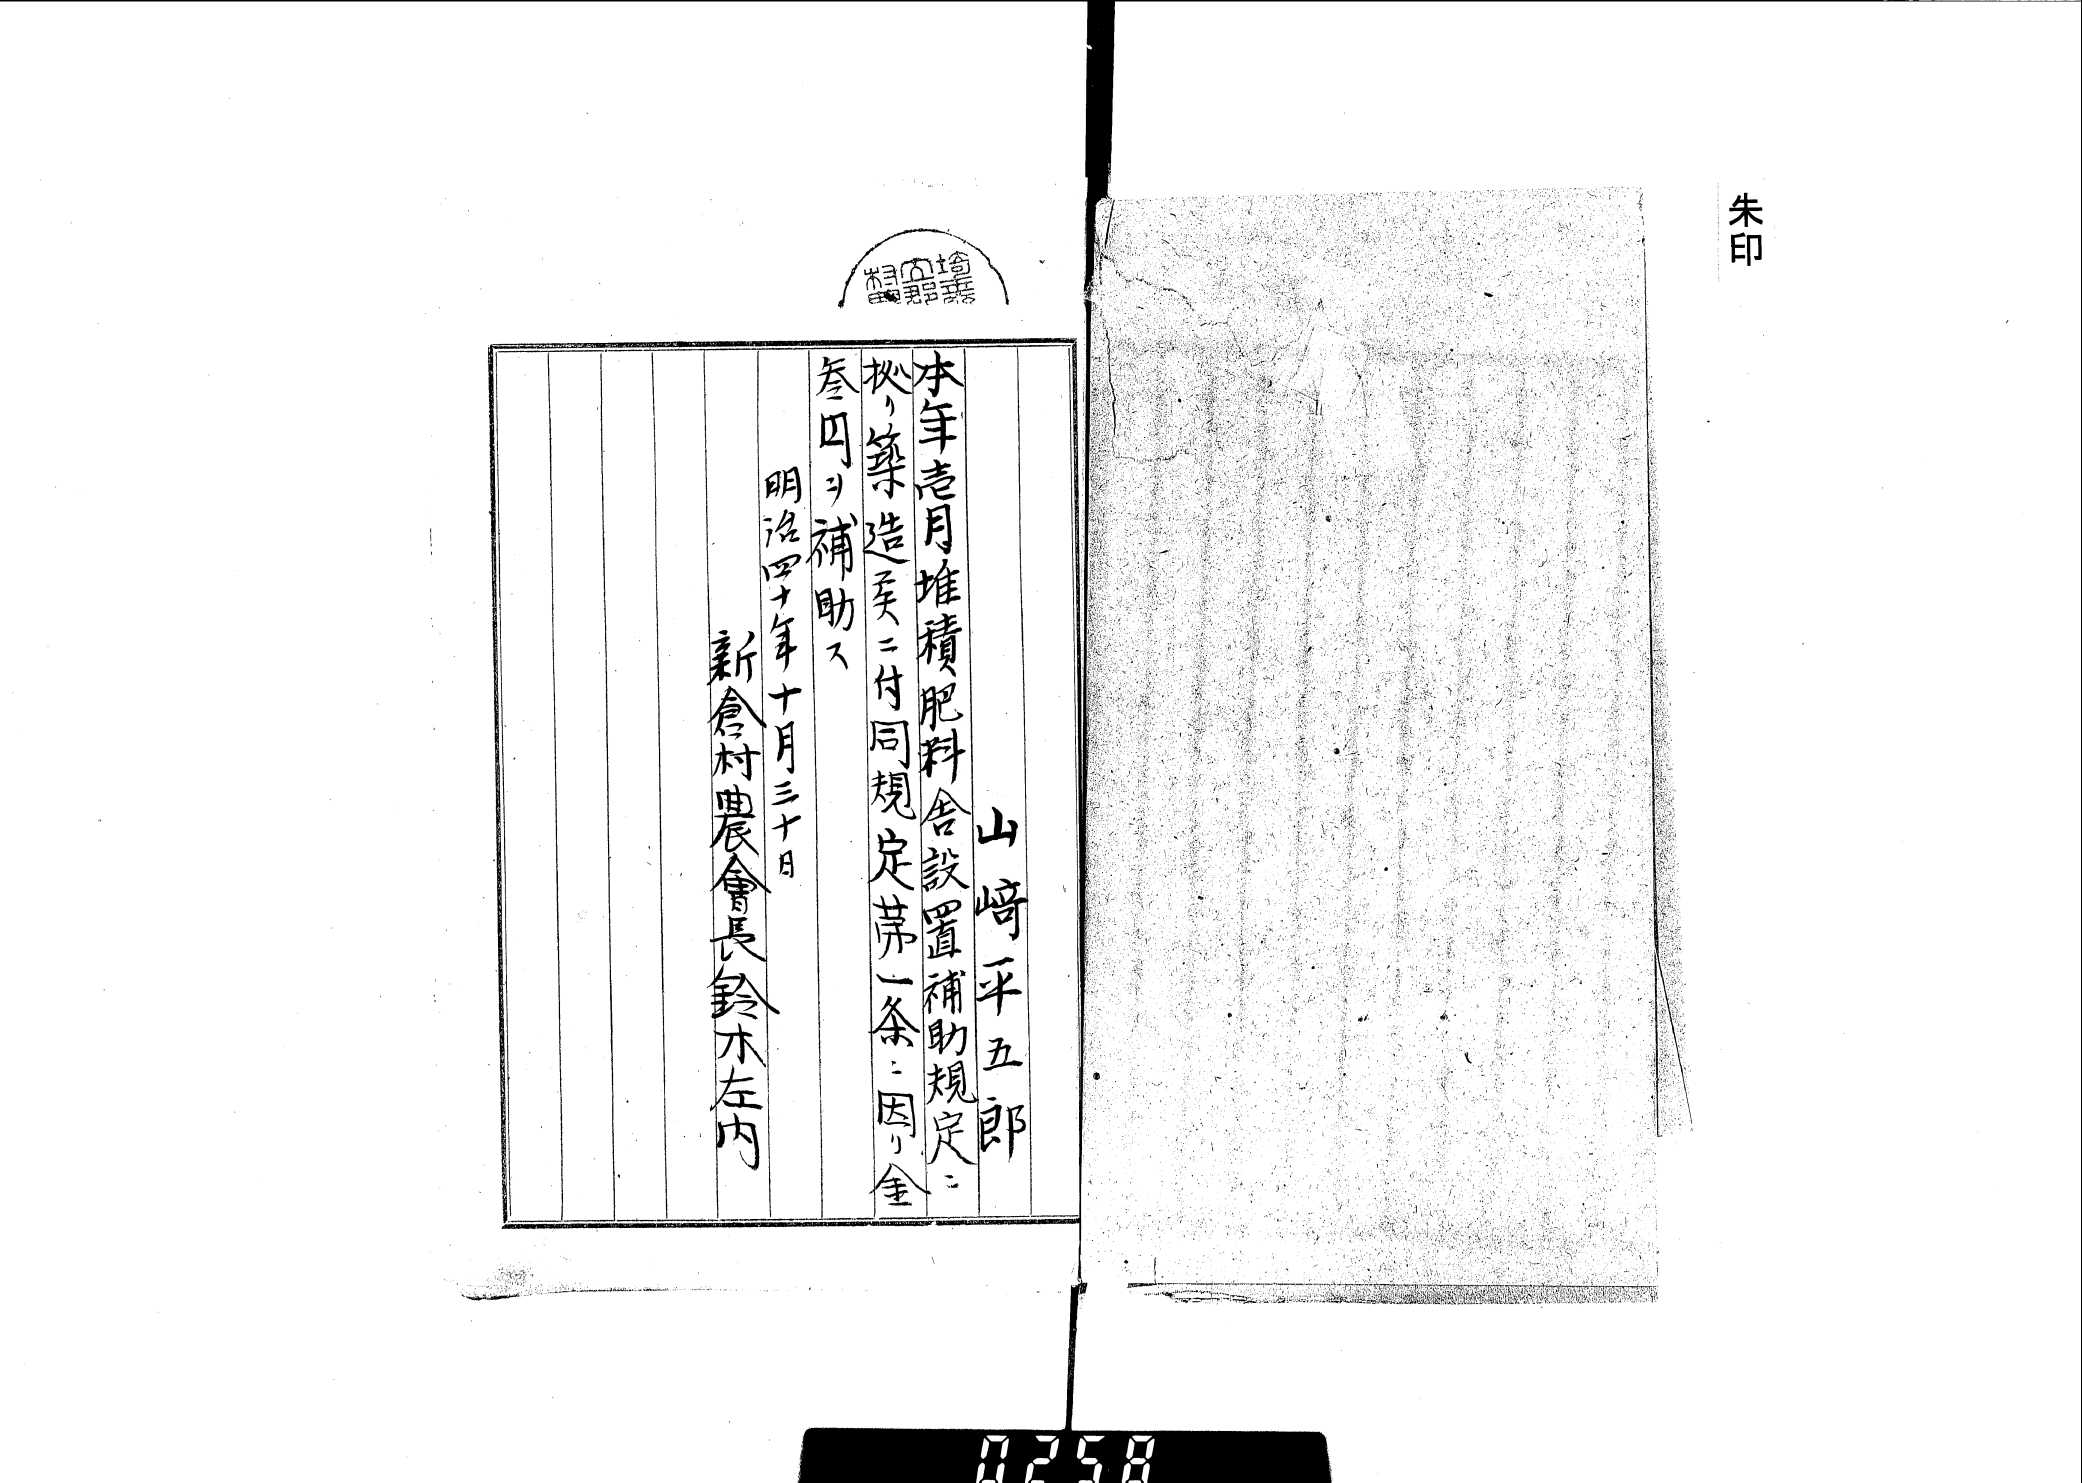 朱印
山﨑平五郎
本年壱月堆積肥料舎設置補助規定ニ
拠リ築造候ニ付同規定第一条ニ因リ金
叁円ヲ補助ス
明治四十年十月三十日
新倉村農會長鈴木左内
0258